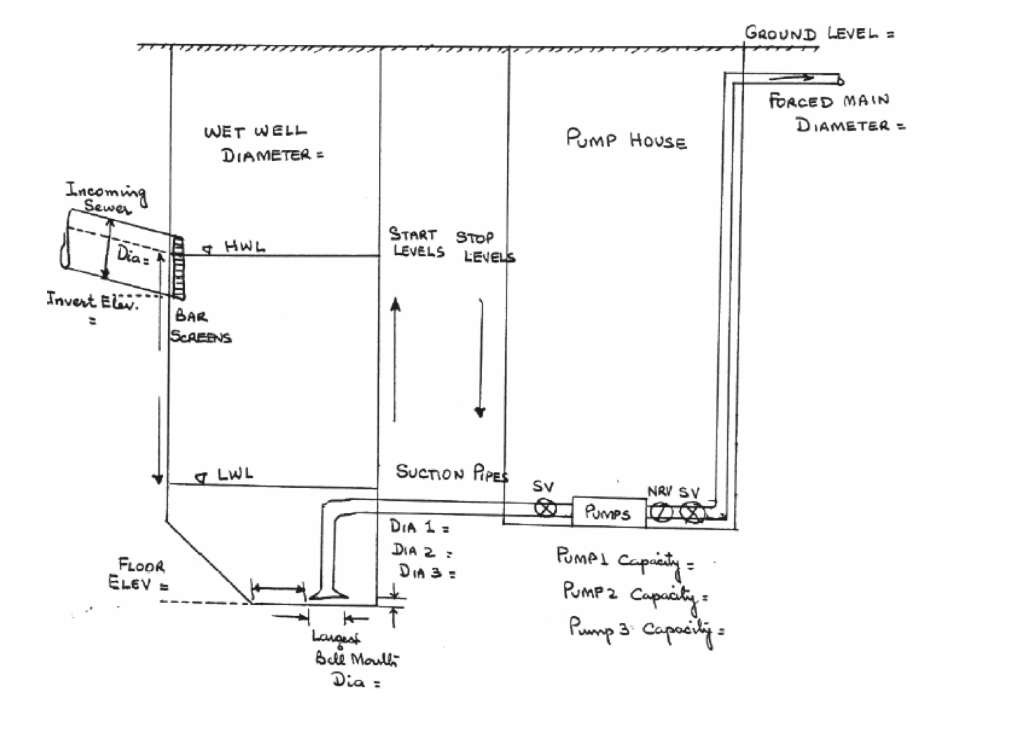 GROUND LEVEL =
FORCED MAIN
DIAMETER =
WET WELL
DIAMETER =
PUMP HOUSE
Incoming
Sewer
Dia=
HWL
START
LEVELS
STOP
LEVELS
Invert Elev.
=
BAR
SCREENS
LWL
SUCTION PIPES
SV
NRV SV
PUMPS
DIA 1 =
DIA 2 =
DIA 3 =
FLOOR
ELEV =
PUMP1 Capacity =
PUMP2 Capacity =
Pump 3 Capacity =
Largest
Bell Mouth
Dia =